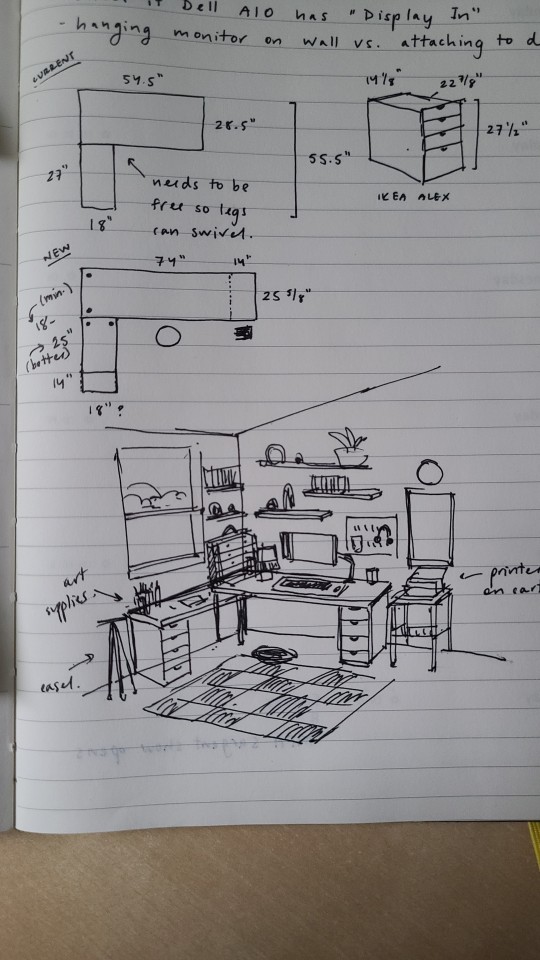 if Dell AIO has "Display In"
- hanging monitor on wall vs. attaching to d
CURRENT
54.5"
28.5"
27"
18"
needs to be
free so legs
can swivel.
55.5"
14 1/8"
22 7/8"
27 1/2"
IKEA ALEX
NEW
74"
14"
25 5/8"
(min.)
18-
25"
(better)
14"
18"?
art
supplies.
easel.
printer
on cart